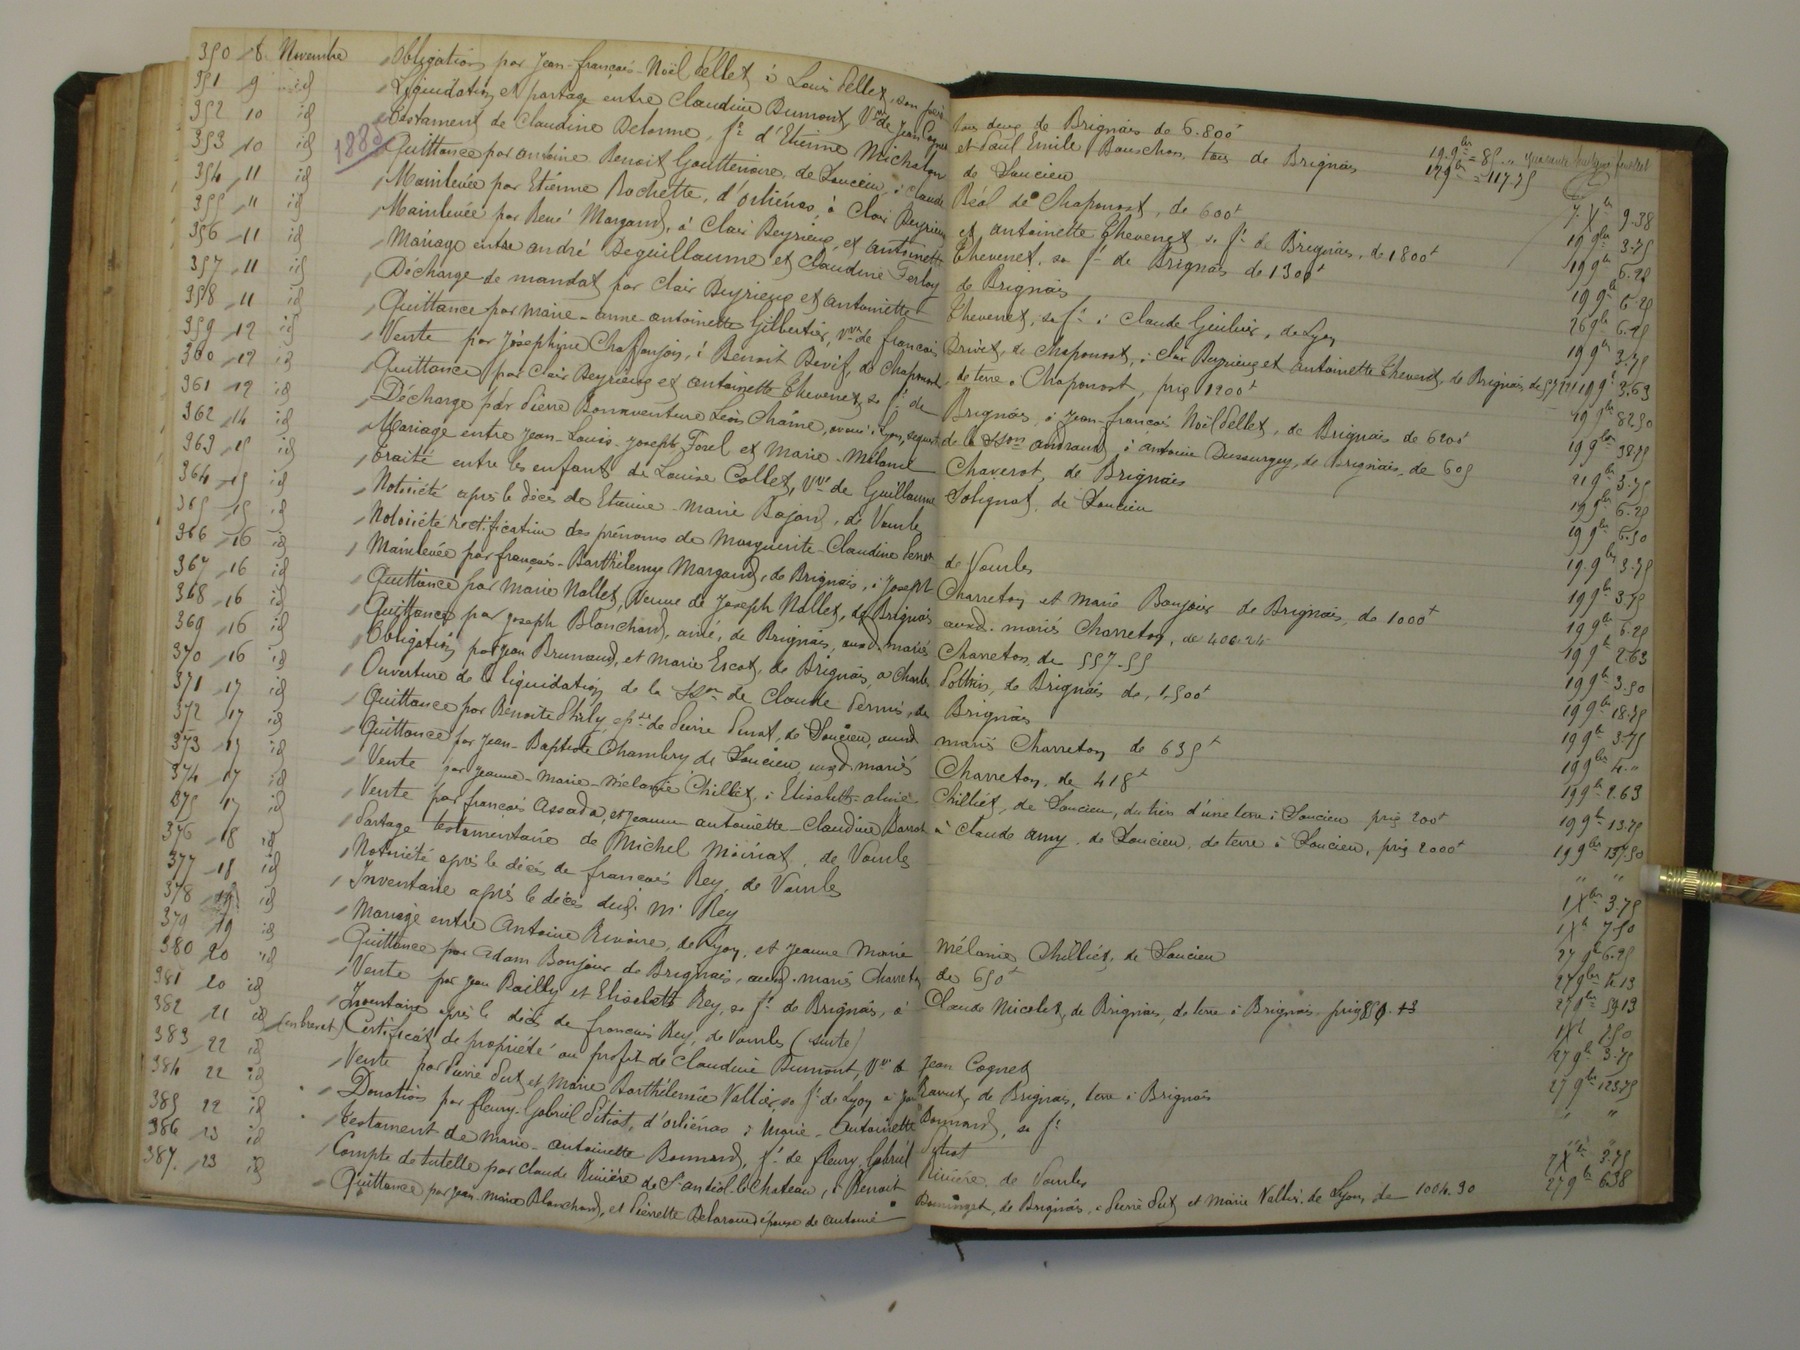 350 8 Novembre Obligation par Jean-françois-Noël Pellet, à Louis Pellet, son frère tous deux de Brignais de 6.800f 19 9bre = 85 "
351 9 id Liquidation et partage entre Claudine Dumont, Vve de Jean Cognet et Paul Emile Bouschon, tous de Brignais 17 9bre = 117.75
352 10 id Testament de Claudine Delorme, fe d'Etienne Michalon de Soucieu 7 Xbre 9.38
1883
353 10 id Quittance par antoine Benoit Gouttenoire, de Soucieu, à Claude Réal de Chaponost, de 600f 19 9bre 3.75
354 11 id Mainlevée par Etienne Rochette, d'orliénas, à Clair Peyrieux et antoinette Thevenet, sa fe de Brignais, de 1800f 19 9bre 6.28
355 11 id Mainlevée par René Margand, à Clair Peyrieux, et antoinette Thevenet, sa fe de Brignais de 1300f 19 9bre 6.25
356 11 id Mariage entre andré Deguillaume et Claudine Ferlay de Brignais 26 9bre 6.25
357 11 id Décharge de mandat par Clair Peyrieux et antoinette Thevenet, sa fe à Claude, de Lyon 19 9bre 3.75
358 11 id Quittance par marie-anne-antoinette Gilbertier, Vve de francois Privet, de Chaponost, à Clair Peyrieux et antoinette Thevenet, de Brignais de 19 9bre 3.63
359 12 id Vente par Joséphine Chaffanjon, à Benoit Bovif, de Chaponost, de terre à Chaponost, prix 1200f 19 9bre 82.50
360 12 id Quittance par Clair Peyrieux et antoinette Thevenet, sa fe de Brignais, à Jean-francois Noël Pellet, de Brignais de 6200f 19 9bre 38.75
361 12 id Décharge par Pierre Bonnaventure Léon Chaine, avoué à Lyon, de la andraud, à antoine Dussurgey, de Brignais, de 605 21 9bre 3.75
362 14 id Mariage entre Jean-Louis-Joseph Forel et Marie-Mélanie Chaverot, de Brignais 19 9bre 6.25
363 15 id Traité entre les enfants de Louise Collet, Vve de Guillaume Solignat, de Soucieu 19 9bre 6.50
364 15 id Notoriété après le décès de Etienne-Marie Bajard, de Vourles 19 9bre 3.75
365 15 id Notoriété rectification des prénoms de Marguerite-Claudine de Vourles 19 9bre 3.75
366 16 id Mainlevée par francois-Barthélemy Margand, de Brignais, à Joseph Charreton et Marie Bonjour de Brignais, de 1000f 19 9bre 6.25
367 16 id Quittance par Marie Nallet, veuve de Joseph Nallet, de Brignais auxd. mariés Charreton, de 406.25 19 9bre 2.63
368 16 id Quittance par Joseph Blanchard, ainé, de Brignais, auxd. mariés Charreton, de 557.55 19 9bre 3.50
369 16 id Obligation par Jean Brunaud, et Marie Escot, de Brignais, à Charles Pothin, de Brignais de 1.500f 19 9bre 18.75
370 16 id Ouverture de la liquidation de la Son de Claude Pernis, de Brignais 19 9bre 3.75
371 17 id Quittance par Benoite, de Pierre, de Soucieu, auxd mariés Charreton de 635f 19 9bre 4."
372 17 id Quittance par Jean-Baptiste Chambry de Soucieu auxd. mariés Charreton, de 418f 19 9bre 2.63
373 17 id Vente par Jeanne-Marie-Mélanie Chilliet, à Elisabeth-aline Chilliet, de Soucieu, du tiers d'une terre à Soucieu prix 200f 19 9bre 13.75
374 17 id Vente par francois Assada, et Jeanne antoinette-Claudine Barrot à Claude Amy, de Soucieu, de terre à Soucieu, prix 2000f 19 9bre 137.50
375 17 id Partage testamentaire de Michel Moiriat, de Vourles " "
376 18 id Notoriété après le décès de francois Rey, de Vourles 1 Xbre 3.75
377 18 id Inventaire après le décès dud. Mr Rey 1 Xbre 7.50
378 19 id Mariage entre Antoine Rivoire, de Lyon, et Jeanne Marie Mélanie Chilliet, de Soucieu 27 9bre 6.25
379 19 id Quittance par Adam Bonjour de Brignais, auxd. mariés Charreton de 650f 27 9bre 4.13
380 20 id Vente par Jean Bailly et Elisabeth Rey, sa fe de Brignais, à Claude Nicolet, de Brignais, de terre à Brignais, prix 27 9bre 59.13
981 20 id Inventaire après le décès de francois Rey, de Vourles (suite) 1 Xbre 7.50
382 21 id (en brevet) Certificat de propriété au profit de Claudine Dumont, Vve de Jean Cognet 27 9bre 3.75
383 22 id Vente par Pierre Dut et Marie Barthélemie Vallier, sa fe de Lyon à Jean Ravet, de Brignais, terre à Brignais 27 9bre 123.75
384 22 id Donation par fleury-Gabriel Pitiot, d'orliénas à Marie-Antoinette Bonnand, sa fe " "
385 22 id Testament de Marie-antoinette Bonnand, fe de fleury Gabriel Pitiot " "
386 23 id Compte de tutelle par Claude Rivière de St andéol-le-Chateau, à Benoit Rivière, de Vourles 7 Xbre 3.75
387. 23 id Quittance par Jean-Marie Blanchard, et Pierrette Delarond épouse de antoine Dominget, de Brignais, à Pierre Dut et Marie Vallier, de Lyon, de 1004.30 27 9bre 6.38